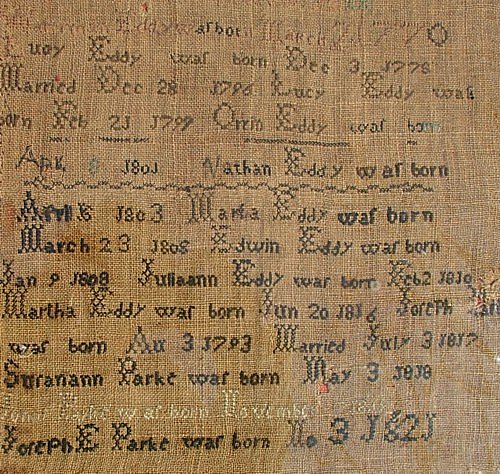 Eddy waſ born March 1770
Lucy Eddy waſ born Dec 3 1778
Married Dec 28 1796 Lucy Eddy waſ
born Feb 21 1799 Orrin Eddy waſ born
Apr 8 1801 Nathan Eddy waſ born
April 6 1803 Maria Eddy waſ born
March 23 1805 Edwin Eddy waſ born
Jan 9 1808 Juliaann Eddy waſ born Feb 2 1810
Martha Eddy waſ born Jun 20 1816 Joseph Parke
waſ born Au 3 1793 Married July 3 1817
Susanann Parke waſ born May 3 1818
Parke waſ born November
Joseph E Parke waſ born No 3 1821